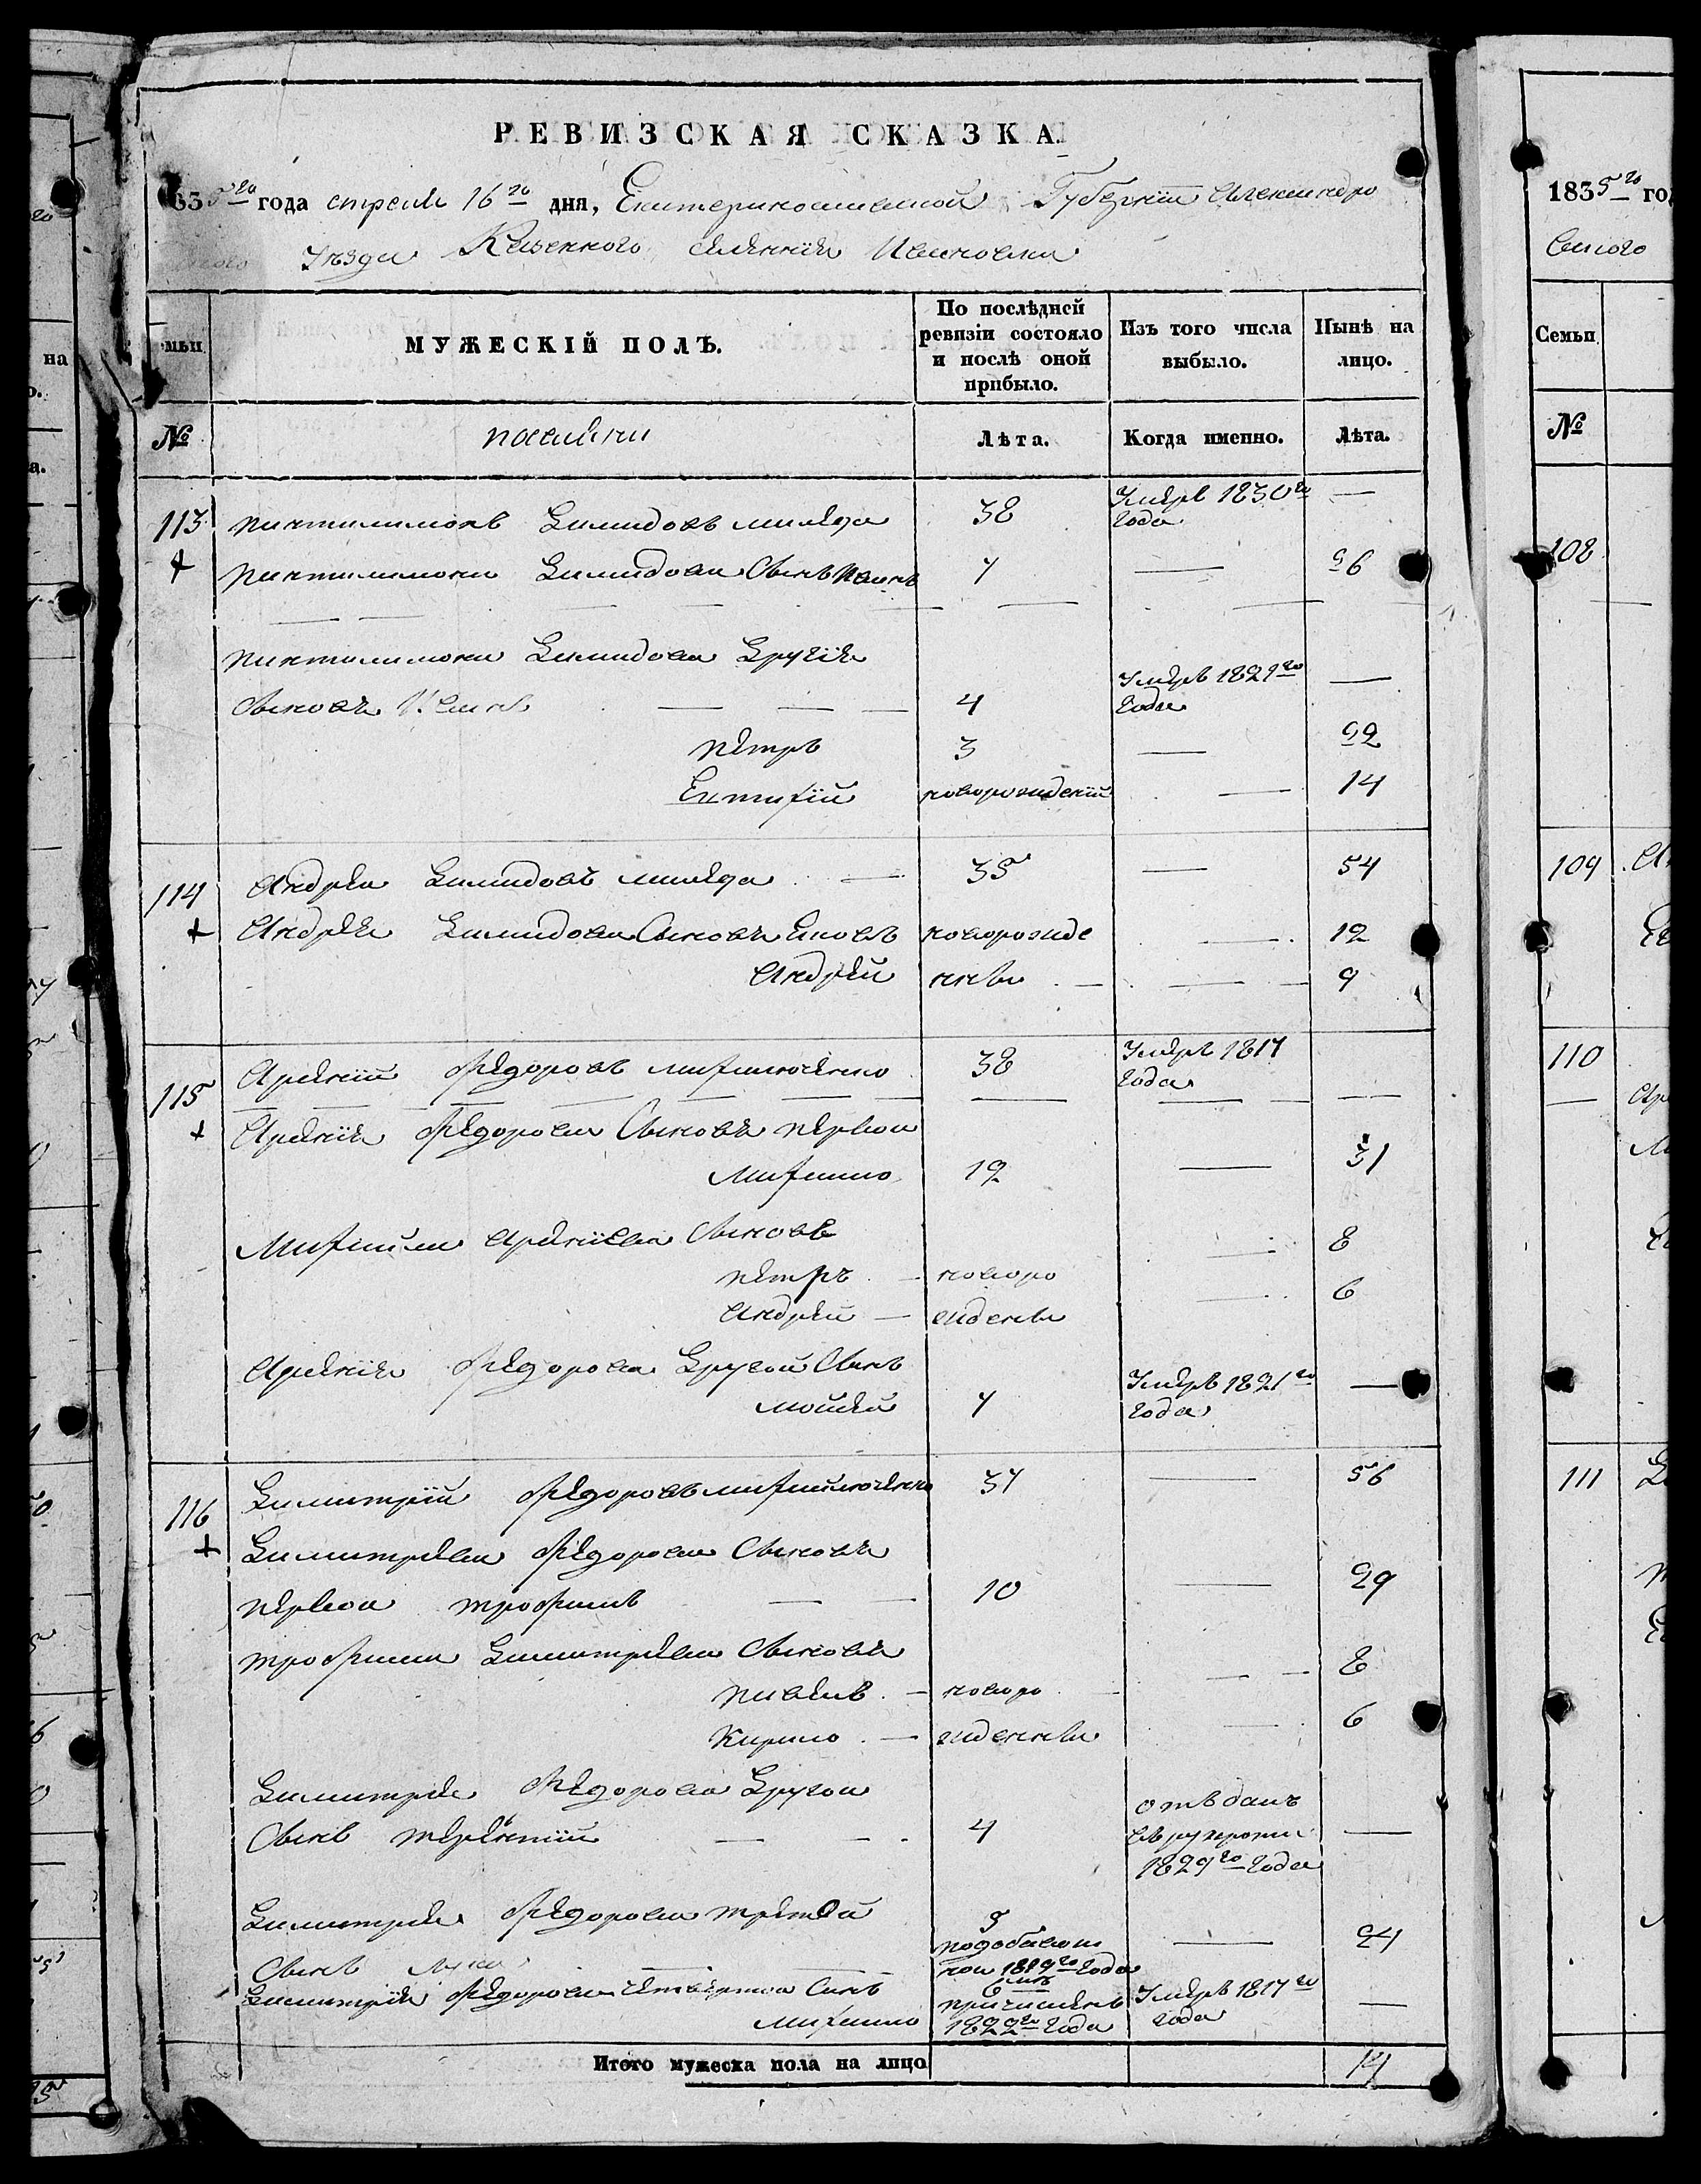 РЕВИЗСКАЯ СКАЗКА.
1835го года апреля 16го дня, Екатериносшавской Губернии Александро
вского Уѣзда Казенного селения Ивановки
Семьи
МУЖЕСКІЙ ПОЛЪ.
По послѣдней ревизіи состояло и послѣ оной прибыло.
Изъ того числа выбыло.
Нынѣ на лицо.
№
Лѣта.
Когда именно.
Лѣта.
113 Пантилимонъ Димидовъ 38 Умеръ 1830го года —
Пантилимона Димидова Сынъ Иванъ 7 — 26
Пантилимона Димидова Другие
Сыновя 4 Умеръ 1821го года —
Петръ 3 — 22
Евтифій новорожденій — 14
114 Андрей Димидовъ 35 — 54
Андрея Димидова Сыновя Яковъ новорожде — 12
Андрей нны — 9
115 Арсеній Федоровъ 38 Умеръ 1817 года
Арсенія Федорова Сыновя первой
Михайло 12 — 31
Михайла Арсеніева Сыновя — 8
Петръ — новоро
Андрей — жденны — 6
Арсенія Федорова Другой Сынъ
Мойсей 7 Умеръ 1821го года —
116 Димитрій Федоровъ 37 — 56
Димитріева Федорова Сыновя
первой Трофимъ 10 — 29
Трофима Димитріева Сыновя — 8
Павелъ — новоро
Кирило — жденны — 6
Димитрія Федорова Другой
Сынъ Терентій 4 отъданъ въ рекроти 1829го года —
Димитрія Федорова третой 5 — 24
Сынъ Лука 1819го года
Димитрія Федорова четвертой Сынъ
Михайло причисленъ 1822го года Умеръ 1817го года —
Итого мужеска пола на лицо 14
1835го год
Семьи
№
108
109
110
111